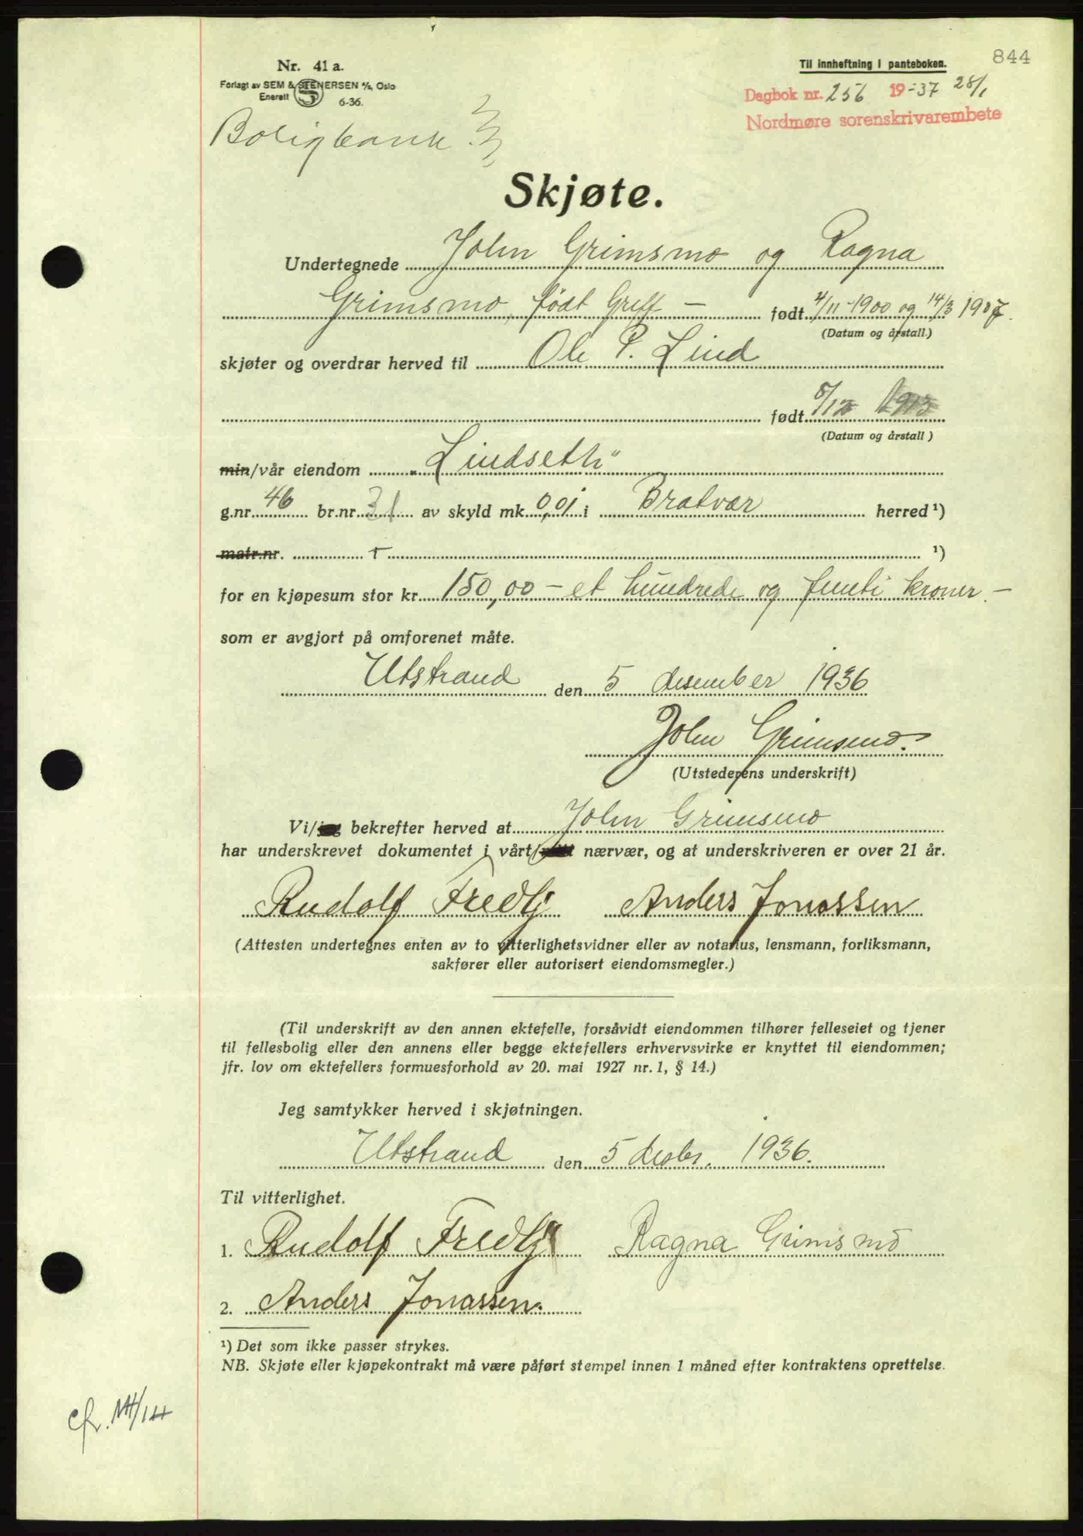 844
Nr. 41 a.
Til innheftning i panteboken.
Forlagt av SEM & STENERSEN A/S, Oslo
Enerett S 6-36.
Dagbok nr. 256 19-37 28/1
Nordmøre sorenskrivarembete
Boligbank
Skjøte.
Undertegnede John Grimsmo og Ragna
Grimsmo, født Greff - født 4/11-1900 og 14/3 1907.
(Datum og årstall.)
skjøter og overdrar herved til Ole P. Lind
født 8/12 1913
(Datum og årstall)
min/vår eiendom „Lindseth"
g.nr. 46 br.nr. 31 av skyld mk. 0,01 i Bratvær herred ¹)
matr.nr. ¹)
for en kjøpesum stor kr. 150,00 - et hundrede og femti kroner. -
som er avgjort på omforenet måte.
Utstrand den 5 desember 1936
John Grimsmo.
(Utstederens underskrift)
Vi/jeg bekrefter herved at John Grimsmo
har underskrevet dokumentet i vårt/mitt nærvær, og at underskriveren er over 21 år.
Rudolf Fredly Anders Jonassen
(Attesten undertegnes enten av to vitterlighetsvidner eller av notarius, lensmann, forliksmann,
sakfører eller autorisert eiendomsmegler.)
(Til underskrift av den annen ektefelle, forsåvidt eiendommen tilhører felleseiet og tjener
til fellesbolig eller den annens eller begge ektefellers erhvervsvirke er knyttet til eiendommen;
jfr. lov om ektefellers formuesforhold av 20. mai 1927 nr. 1, § 14.)
Jeg samtykker herved i skjøtningen.
Utstrand den 5 desbr. 1936.
Til vitterlighet.
1. Rudolf Fredly Ragna Grimsmo
2. Anders Jonassen.
¹) Det som ikke passer strykes.
NB. Skjøte eller kjøpekontrakt må være påført stempel innen 1 måned efter kontraktens oprettelse.
cfr.